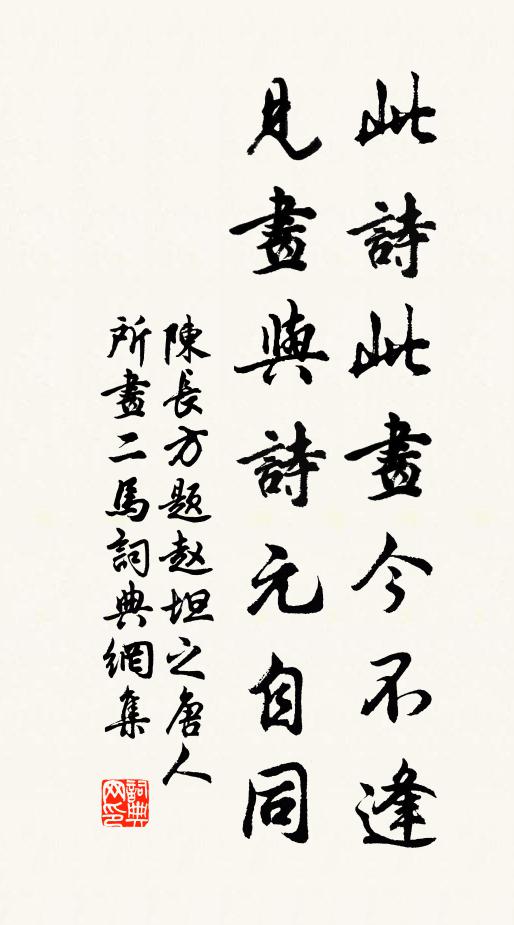 此詩此畫今不逢
見畫與詩元自同
陳長方题赵坦之唐人
所畫二馬詞典網集
詞典
网印